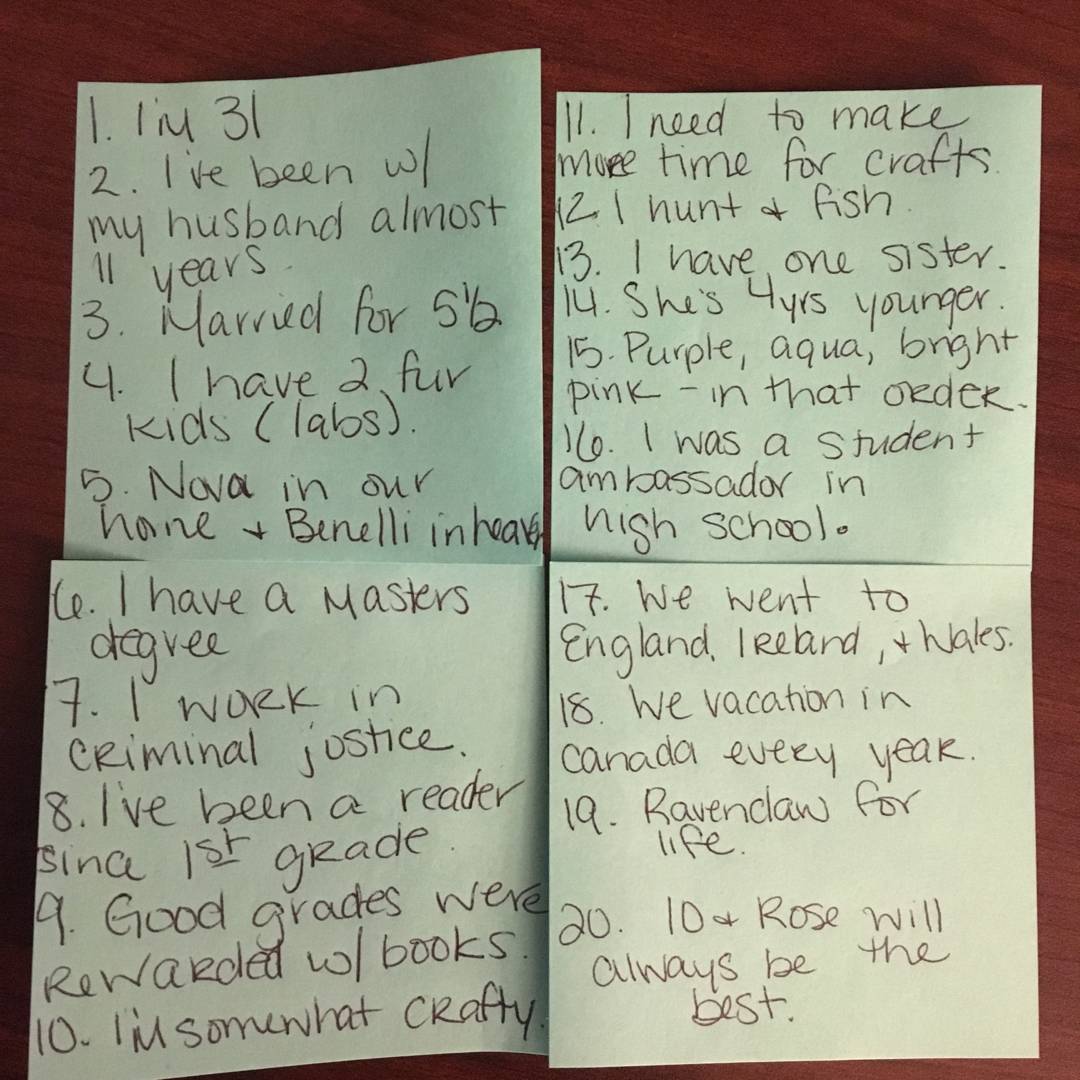 1. I'm 31
2. I've been w/
my husband almost
11 years.
3. Married for 5½
4. I have 2 fur
kids (labs).
5. Nova in our
home + Benelli in heaven
6. I have a Masters
degree
7. I work in
criminal justice.
8. I've been a reader
since 1st grade.
9. Good grades were
rewarded w/ books.
10. I'm somewhat crafty.
11. I need to make
more time for crafts.
12. I hunt + fish.
13. I have one sister.
14. She's 4yrs younger.
15. Purple, aqua, bright
pink - in that order.
16. I was a student
ambassador in
high school.
17. We went to
England, Ireland, + Wales.
18. We vacation in
Canada every year.
19. Ravenclaw for
life.
20. 10 + Rose will
always be the
best.